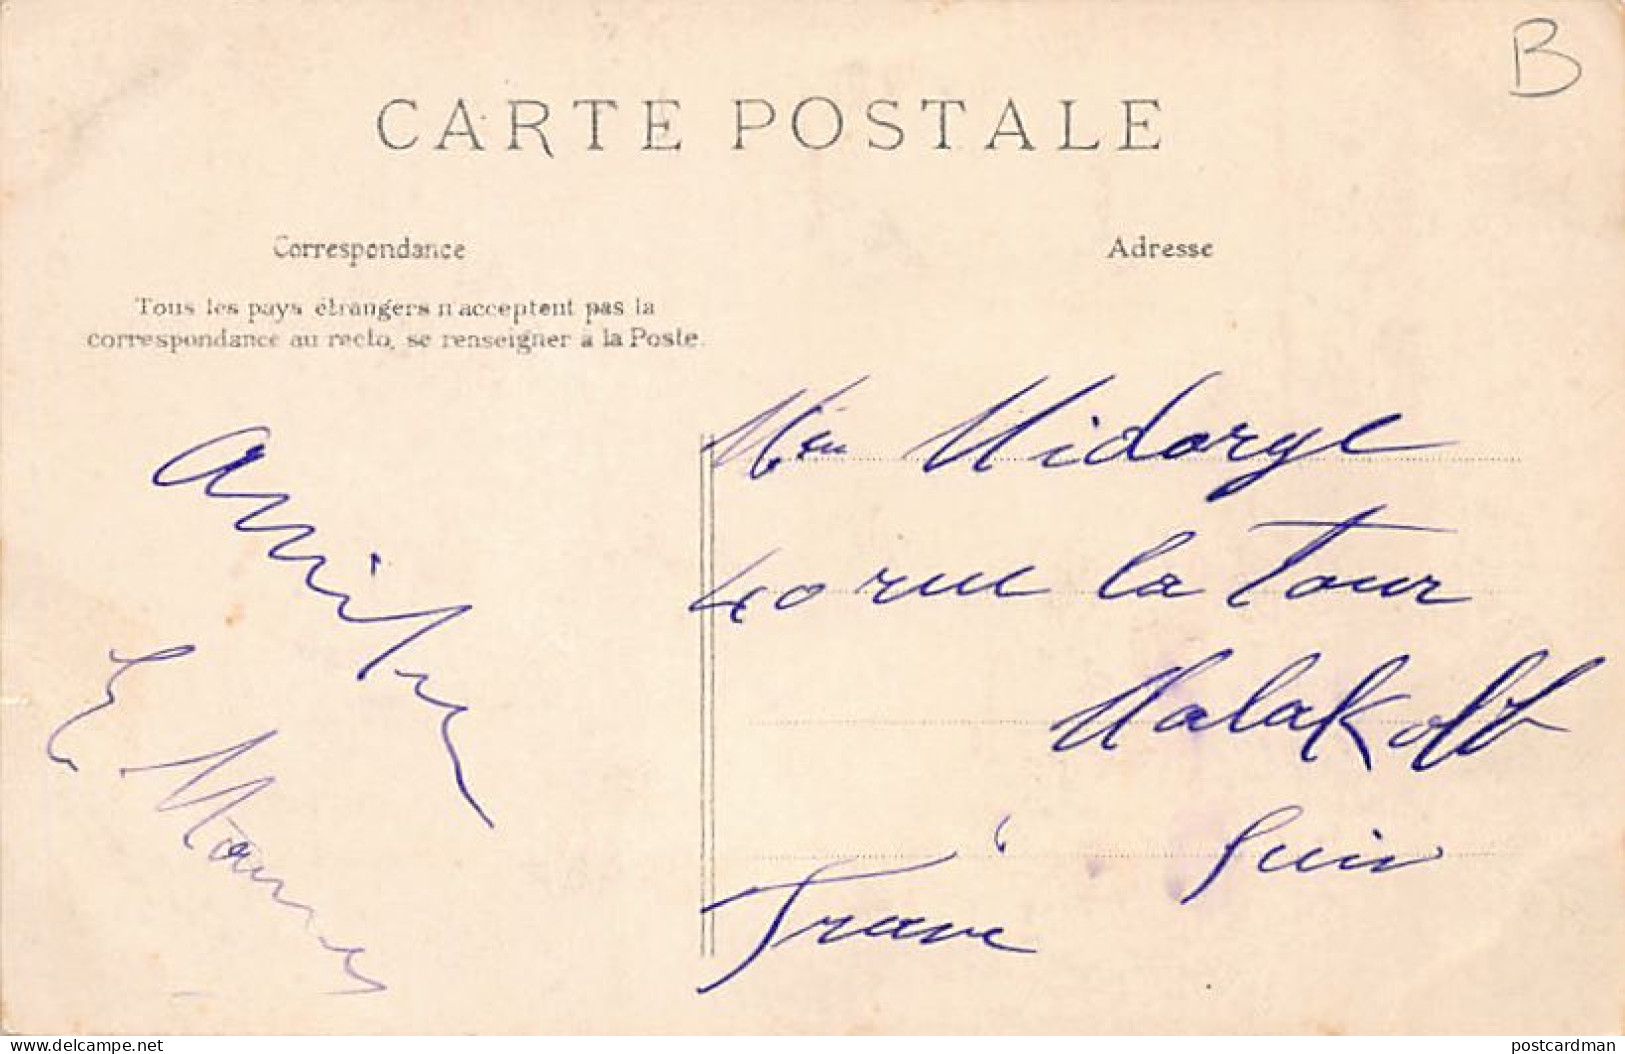 B
CARTE POSTALE
Correspondance
Tous les pays étrangers n'acceptent pas la
correspondance au recto, se renseigner à la Poste.
Adresse
Midorge
40 rue la Tour
Malakoff
Seine
France
Amitiés
E.
www.delcampe.net
postcardman